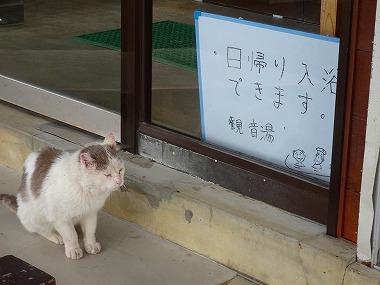 ・日帰り入浴
できます。
観音湯